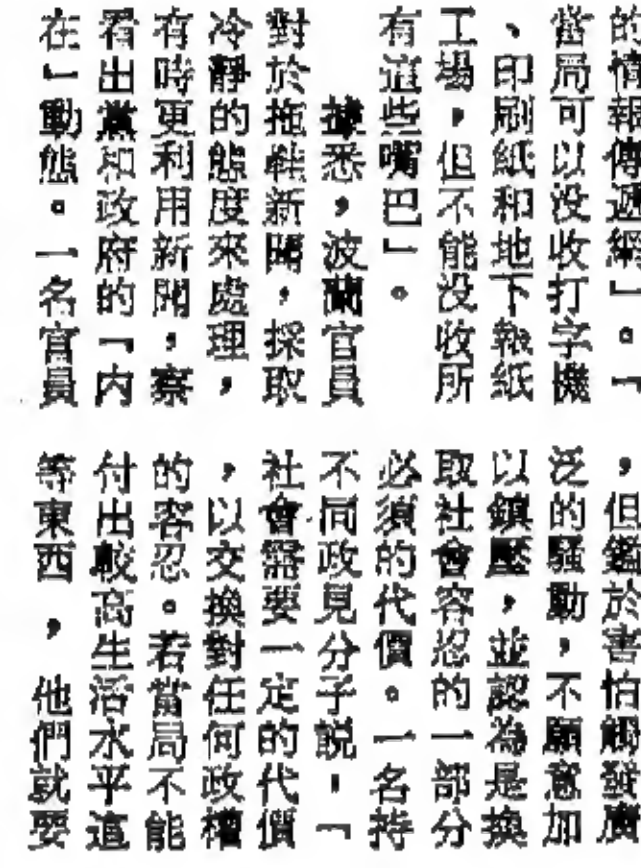 的情報傳遞網」。「
當局可以没收打字機
、印刷紙和地下報紙
工場，但不能没收所
有這些嘴巴」。
據悉，波蘭官員
對於新聞，採取
冷靜的態度來處理，
有時更利用新聞，察
看出黨和政府的「内
在」動態。一名官員
，但鑑於害怕觸發廣
泛的騷動，不願意加
以鎮壓，並認為是換
取社會容忍的一部分
必須的代價。一名持
不同政見分子説：「
社會需要一定的代價
，以交換對任何政權
的容忍。若當局不能
付出較高生活水平這
等東西，他們就要